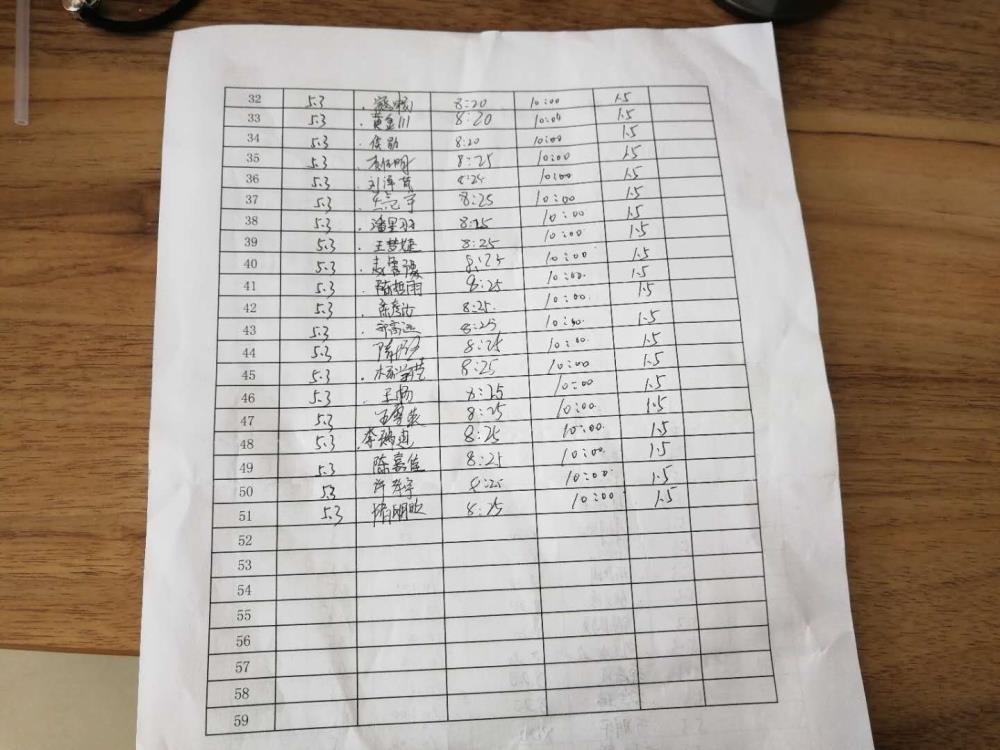 32 5.3 8:20 10:00 1.5
33 5.3 黄金川 8:20 10:00 1.5
34 5.3 侯勋 8:20 10:00 1.5
35 5.3 8:25 10:00 1.5
36 5.3 刘泽 8:25 10:00 1.5
37 5.3 宇 8:25 10:00 1.5
38 5.3 潘 8:25 10:00 1.5
39 5.3 王梦婕 8:25 10:00 1.5
40 5.3 8:25 10:00 1.5
41 5.3 陈哲雨 8:25 10:00 1.5
42 5.3 8:25 10:00 1.5
43 5.3 高远 8:25 10:00 1.5
44 5.3 陈 8:25 10:00 1.5
45 5.3 8:25 10:00 1.5
46 5.3 王杨 8:25 10:00 1.5
47 5.3 8:25 10:00 1.5
48 5.3 李 8:25 10:00 1.5
49 5.3 陈嘉佳 8:25 10:00 1.5
50 5.3 许 8:25 10:00 1.5
51 5.3 8:25 10:00 1.5
52
53
54
55
56
57
58
59